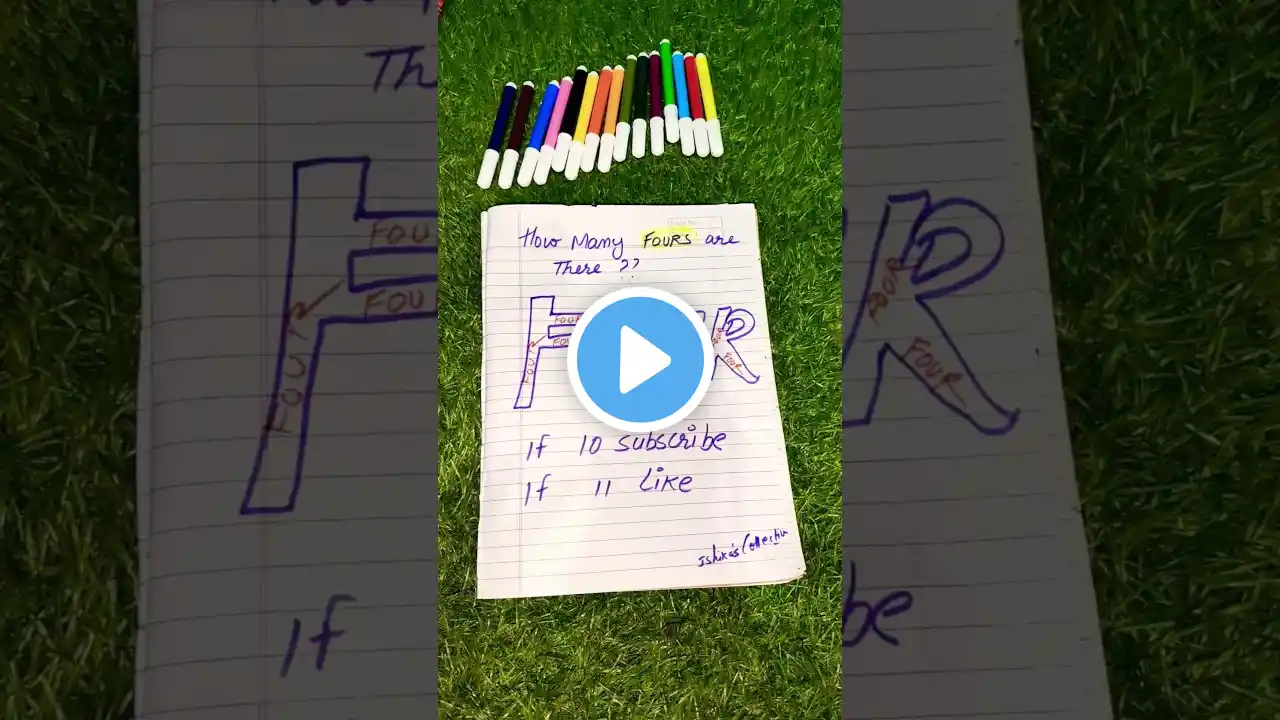 How Many FOURS are
There ??
FOUR
FOUR
FOUR
FOUR
FOUR
If 10 subscribe
If 11 Like
Ishika's Collection